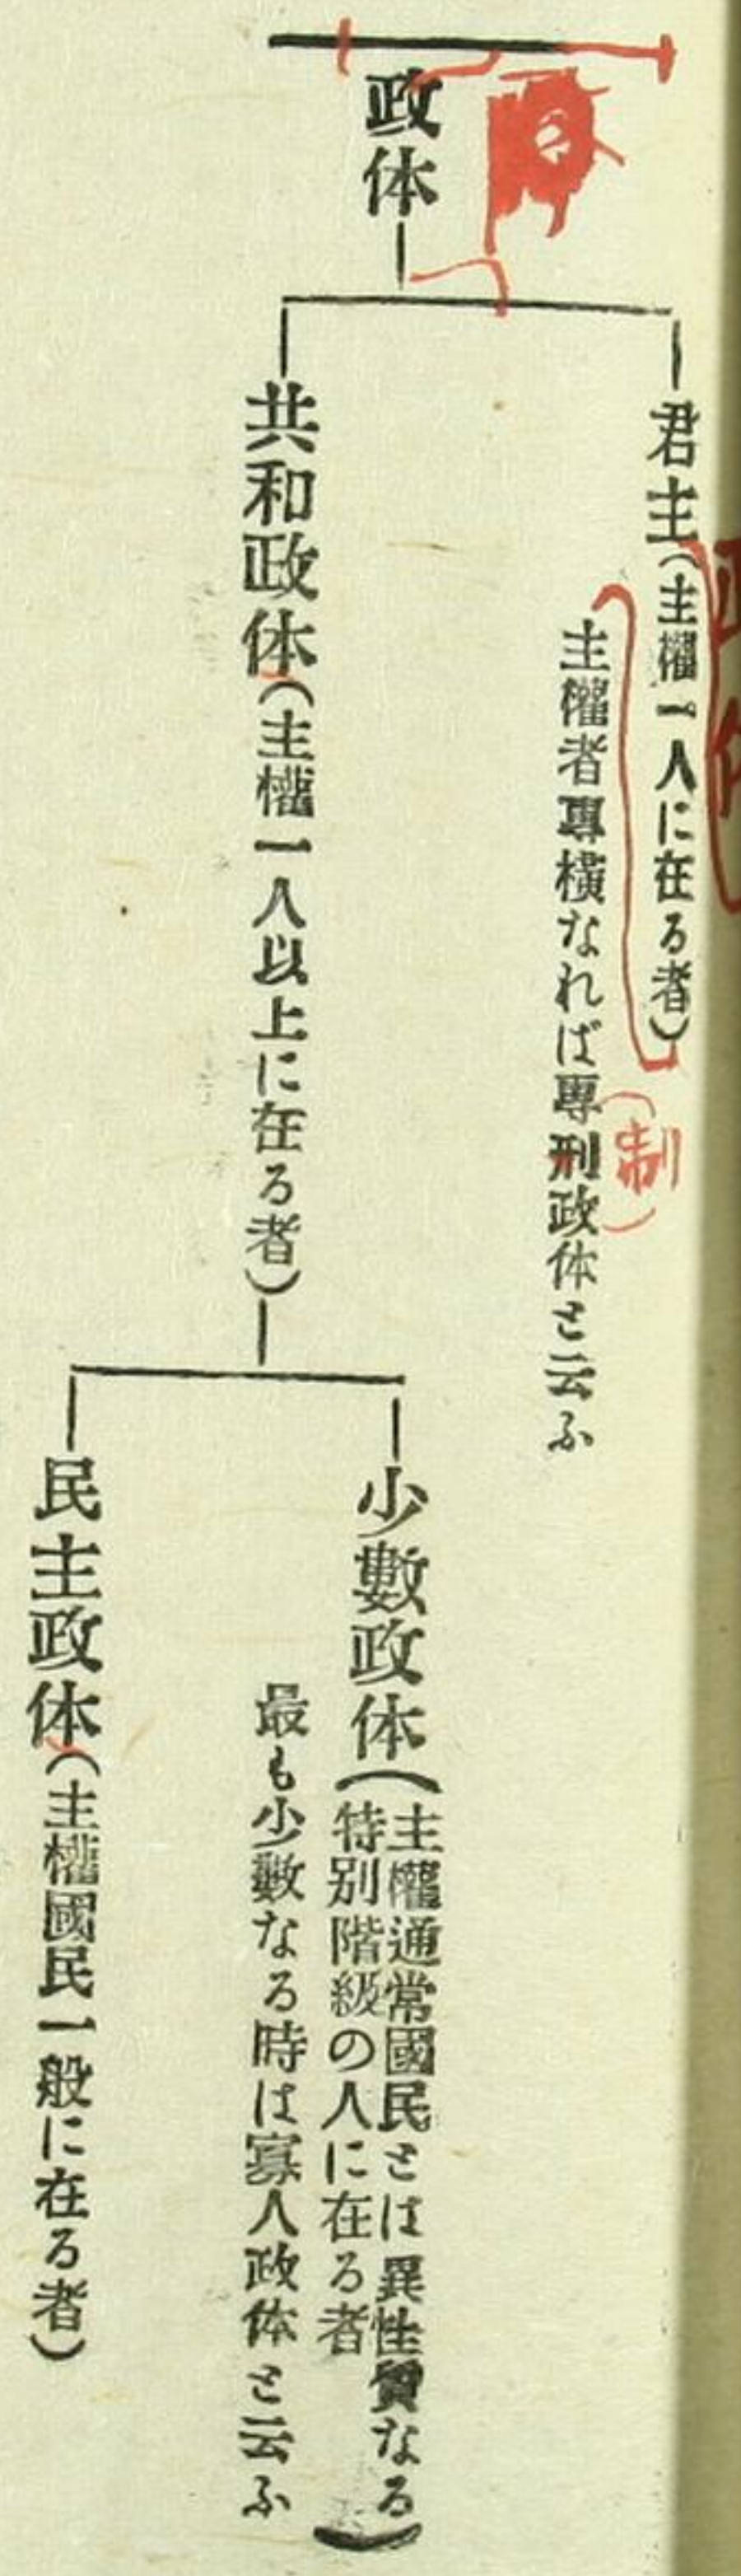 政体
君主(主權一人に在る者)
主權者專橫なれば專刑政体と云ふ
(制)
共和政体(主權一人以上に在る者)
少數政体(主權通常國民とは異性質なる
特別階級の人に在る者)
最も少數なる時は寡人政体と云ふ
民主政体(主權國民一般に在る者)